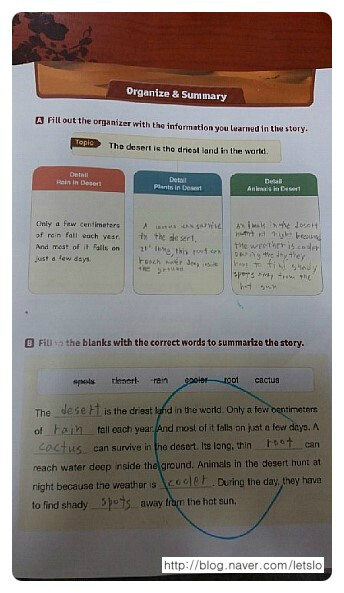 Organize & Summary
A Fill out the organizer with the information you learned in the story.
Topic The desert is the driest land in the world.
Detail
Rain in Desert
Only a few centimeters
of rain fall each year.
And most of it falls on
just a few days.
Detail
Plants in Desert
A cactus can survive
in the desert,
It's long, thin root can
reach water deep inside
the ground.
Detail
Animals in Desert
animals in the desert
hunt at night because
the weather is cooler
During the day, they
have to find shady
spots away from the
hot sun
B Fill in the blanks with the correct words to summarize the story.
spots desert rain cooler root cactus
The desert is the driest land in the world. Only a few centimeters
of rain fall each year. And most of it falls on just a few days. A
cactus can survive in the desert. Its long, thin root can
reach water deep inside the ground. Animals in the desert hunt at
night because the weather is cooler. During the day, they have
to find shady spots away from the hot sun.
http://blog.naver.com/letslo